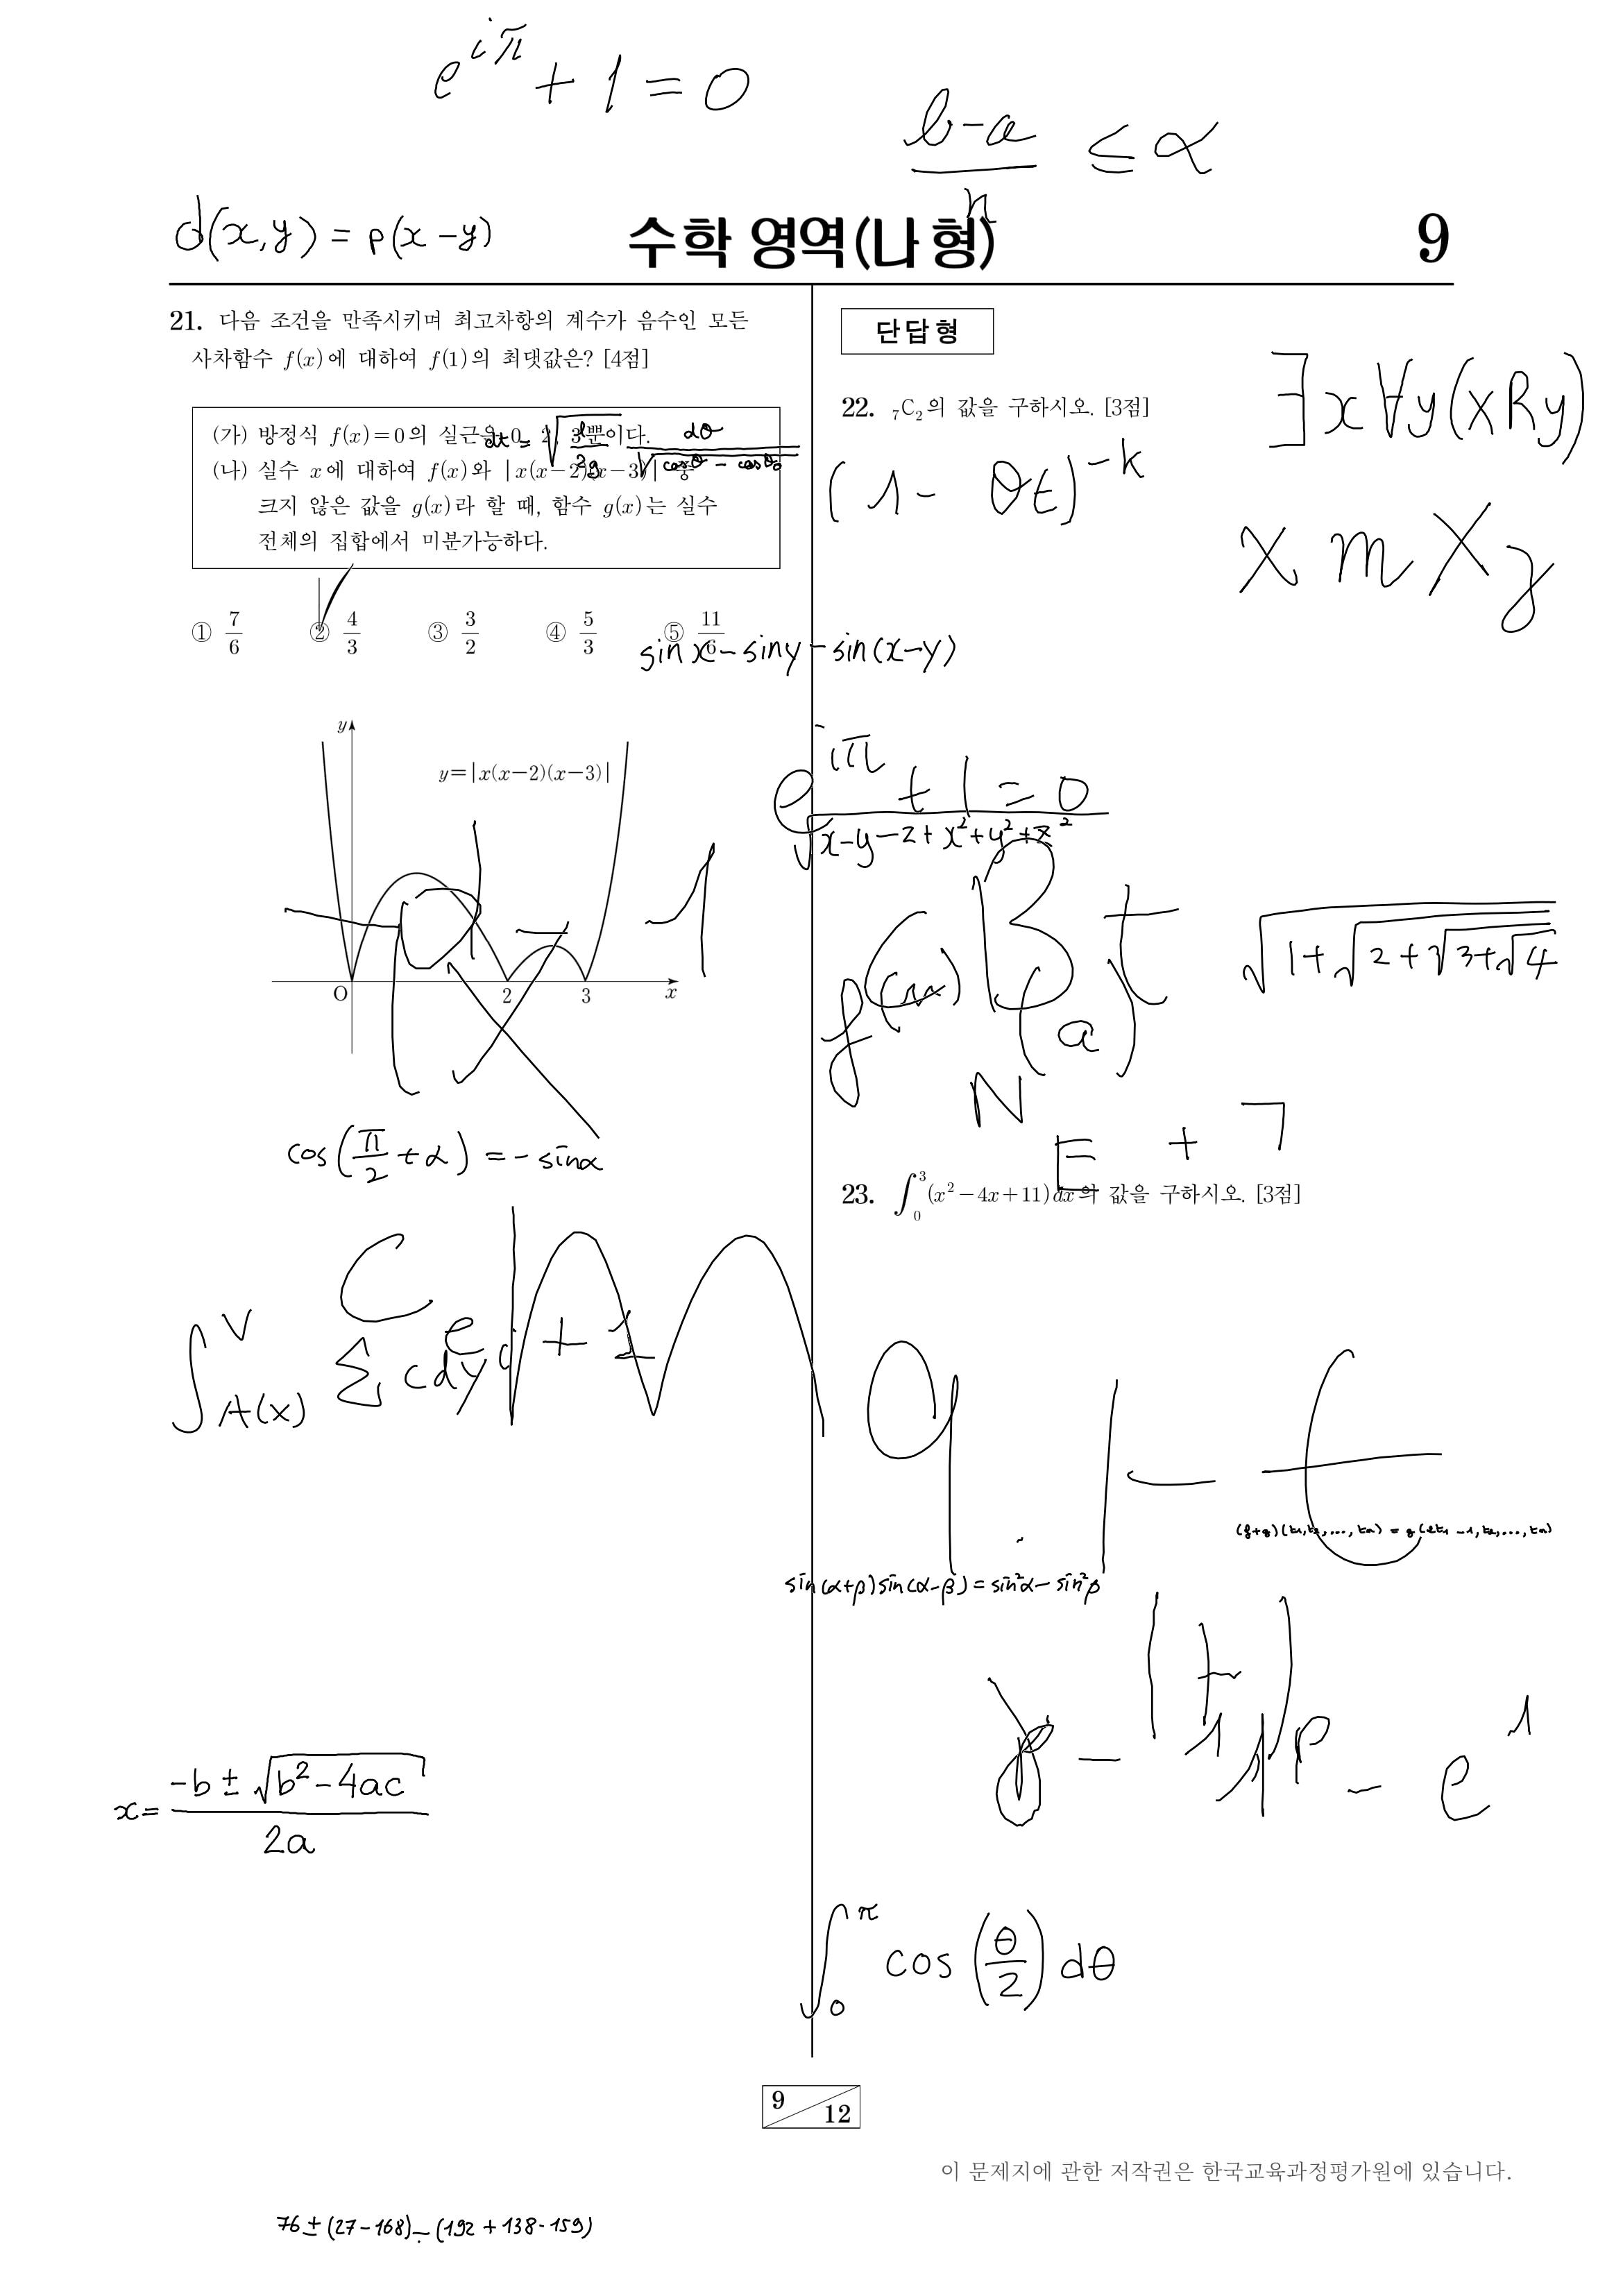 e^{iπ} + 1 = 0
\frac{b-a}{n} ≤ α
d(x,y) = p(x-y)
수학 영역(나 형)
9
21. 다음 조건을 만족시키며 최고차항의 계수가 음수인 모든
사차함수 f(x)에 대하여 f(1)의 최댓값은? [4점]
(가) 방정식 f(x)=0의 실근은 0, 2, 3뿐이다.
dt = \sqrt{\frac{l}{2g}} \frac{dθ}{\sqrt{cosθ - cosθ_0}}
(나) 실수 x에 대하여 f(x)와 |x(x-2)(x-3)| 중
크지 않은 값을 g(x)라 할 때, 함수 g(x)는 실수
전체의 집합에서 미분가능하다.
① 7/6 ② 4/3 ③ 3/2 ④ 5/3 ⑤ 11/6
sin x - sin y - sin(x-y)
y
y=|x(x-2)(x-3)|
O 2 3 x
- 1
cos(\frac{π}{2} + α) = -sinα
x = \frac{-b ± \sqrt{b^2-4ac}}{2a}
단답형
22. ₇C₂의 값을 구하시오. [3점]
∃x∀y(xRy)
(1 - θt)^{-k}
X m X z
e^{iπ} + 1 = 0
\sqrt{x-y-z+x^2+y^2+z^2}
\sqrt{1+\sqrt{2+\sqrt{3+\sqrt{4}}}}
(a)
N
E + 7
23. ∫_0^3 (x²-4x+11)dx의 값을 구하시오. [3점]
9 . 1 - t
sin(α+β)sin(α-β) = sin²α - sin²β
- e^1
∫_0^π cos(\frac{θ}{2}) dθ
9
12
이 문제지에 관한 저작권은 한국교육과정평가원에 있습니다.
76 ± (27-168) - (192+138-159)